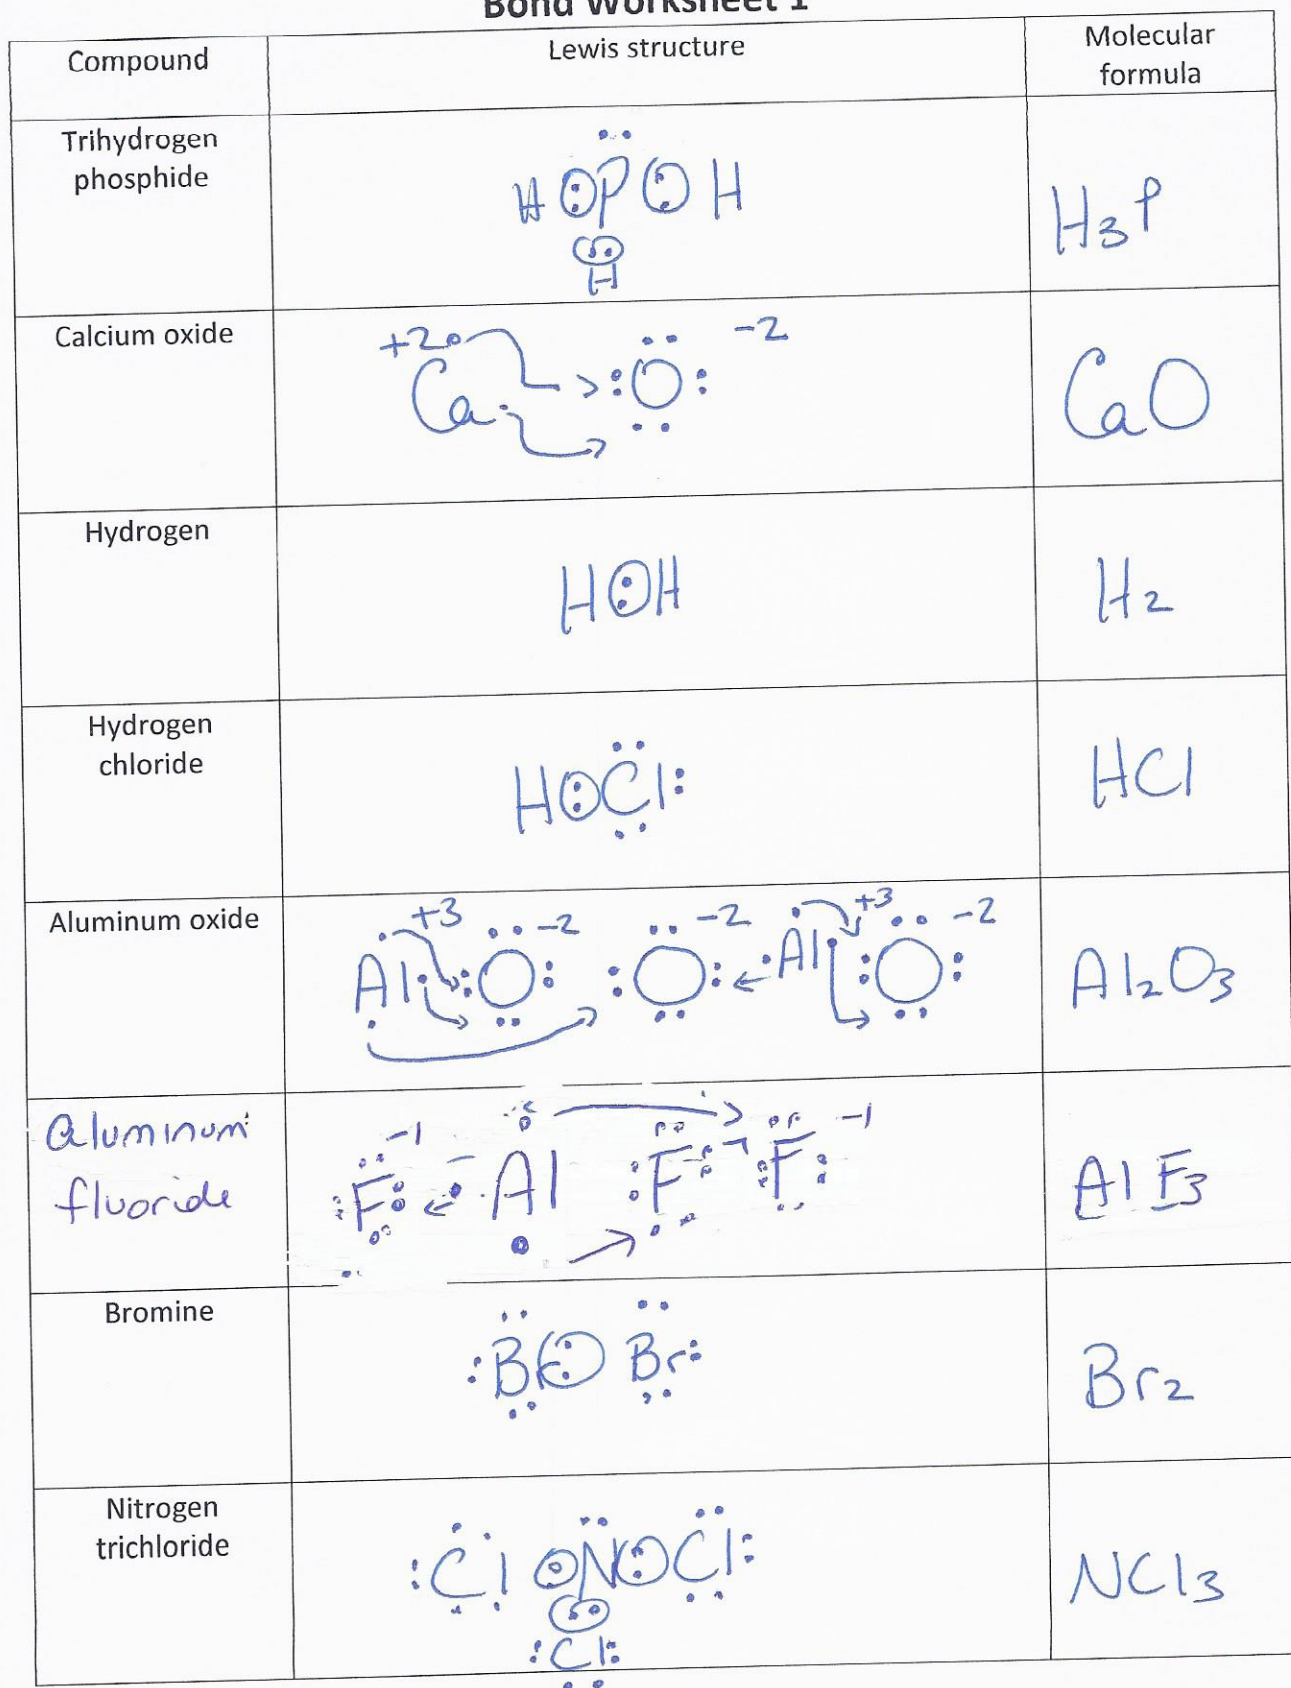 Bond Worksheet 1
Compound
Lewis structure
Molecular
formula
Trihydrogen
phosphide
H : P : H
H
H3P
Calcium oxide
+2
-2
Ca
O
CaO
Hydrogen
H : H
H2
Hydrogen
chloride
H : Cl :
HCl
Aluminum oxide
+3 -2 -2 +3 -2
Al : O : : O : Al : O :
Al2O3
Aluminum
fluoride
-1 -1
: F : Al : F : : F :
AlF3
Bromine
: Br : Br :
Br2
Nitrogen
trichloride
: Cl : N : Cl :
: Cl :
NCl3